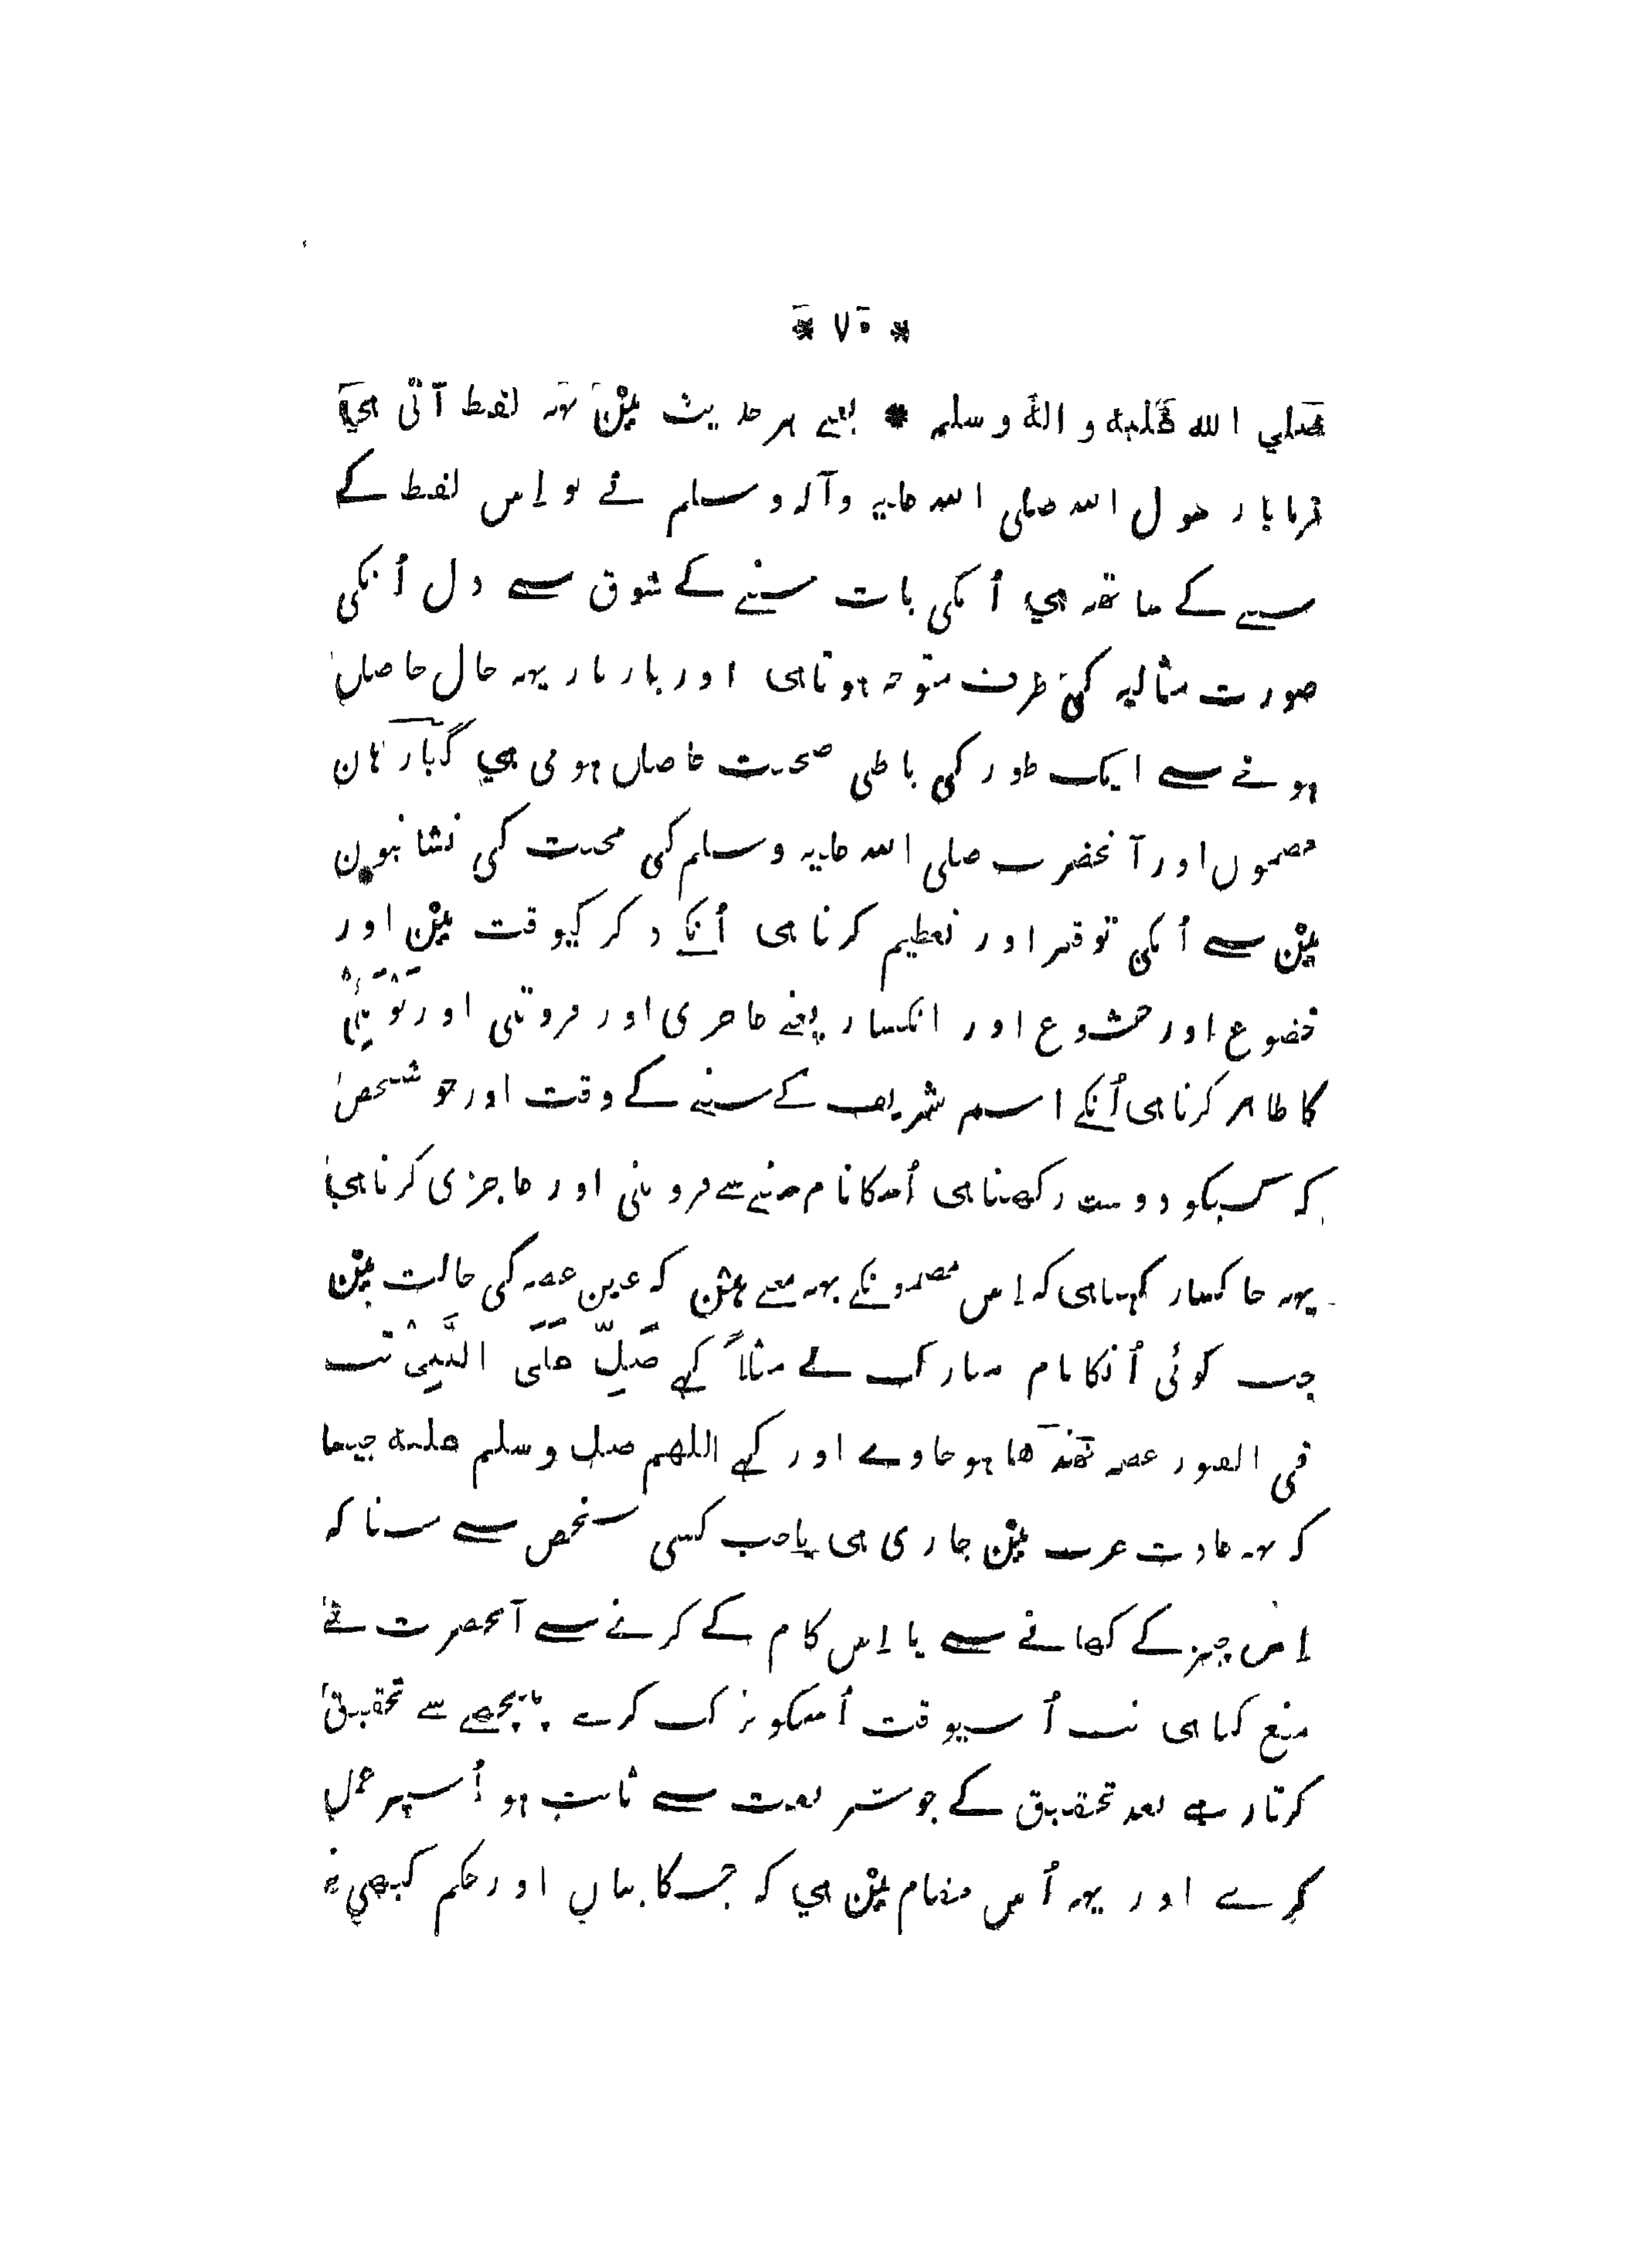 * ۷۰ *
صلي الله عليه و اله و سلم * یعنے ہر حدیث میں یہہ لفظ آتی ہي
فرمایا رسول اللہ صلی اللہ علیہ وآلہ وسلم نے تو اِس لفظ کے
سنے کے ساتھہ ہي اُنکی بات سننے کے شوق سے دل اُنکی
صورت مثالیہ کی طرف متوجہ ہوتا ہی اور بار بار یہہ حال حاصل
ہونے سے ایک طور کی باطنی صحبت حاصل ہوتی ہي گیارہاں
مضموں اور آنحضرت صلی اللہ علیہ وسلم کی محبت کی نشانیوں
میں سے اُنکی توقیر اور تعظیم کرنا ہی اُنکے ذکر کیوقت میں اور
خضوع اور خشوع اور انکسار یعنے عاجزی اور فروتنی اور
کا ظاہر کرنا ہی اُنکے اسم شریف کے سننے کے وقت اور جو شخص
کہ کسیکو دوست رکھتا ہی اُسکا نام سننے سے فروتنی اور عاجزی کرتا ہی
یہہ خاکسار کہتا ہی کہ اِس مضمونکے یہہ معنے ہیں کہ عین غصہ کی حالت میں
جب کوئی اُنکا نام مبارک لے مثلاً کہے صَلِّ عَلَی النَّبِیْ تب
فی الفور غصہ ٹھنڈھا ہو جاوے اور کہے اللهم صل و سلم عليه جیسا
کہ یہہ عادت عرب میں جاری ہی یا جب کسی شخص سے سنا کہ
اِس چیز کے کھانے سے یا اِس کام کے کرنے سے آنحضرت نے
منع کیا ہی تب اُسیوقت اُسکو ترک کرے پھر پیچھے سے تحقیق
کرتا رہے بعد تحقیق کے جو شریعت سے ثابت ہو اُسپر عمل
کرے اور یہہ اُس مقام میں ہي کہ جسکا بیاں اور حکم کبھي نہ